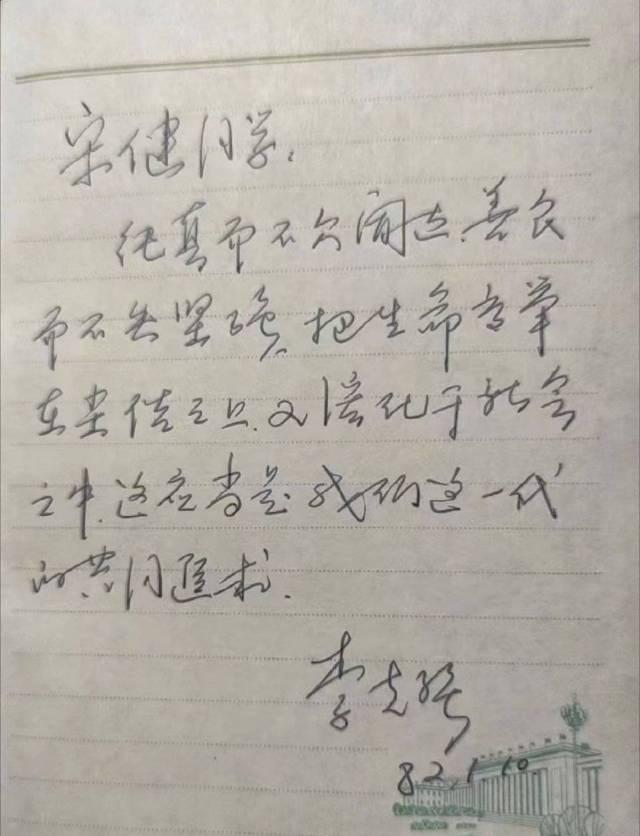 宋健同学：
纯真而不欠阔达，善良
而不失坚强，把生命高举
在尘俗之上，又溶化于社会
之中，这应当是我们这一代
的共同追求．
李克强
82.1.10